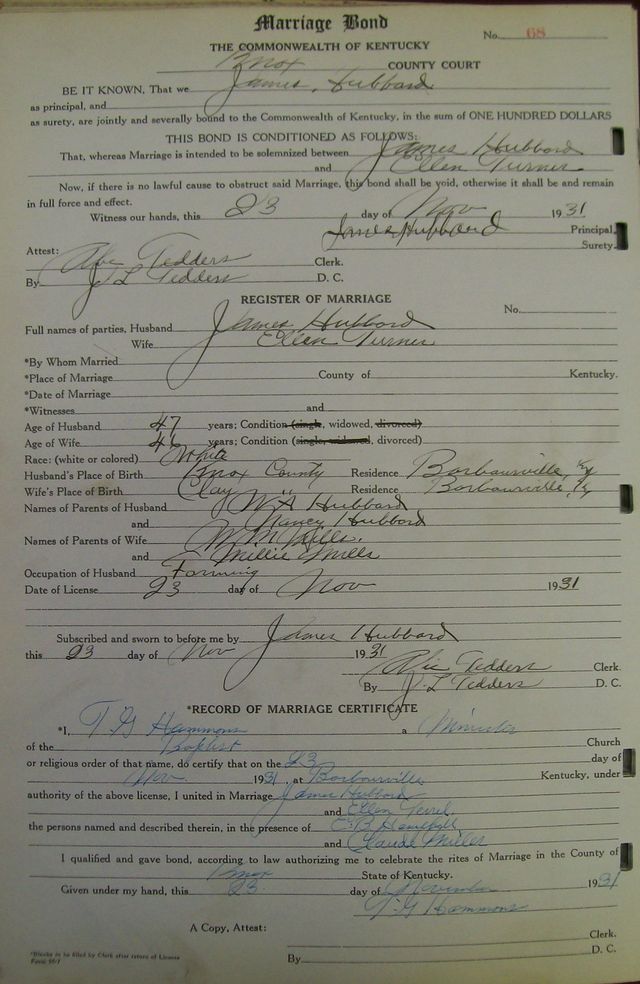 Marriage Bond
No. 68
THE COMMONWEALTH OF KENTUCKY
Knox COUNTY COURT
BE IT KNOWN, That we James Hubbard
as principal, and
as surety, are jointly and severally bound to the Commonwealth of Kentucky, in the sum of ONE HUNDRED DOLLARS
THIS BOND IS CONDITIONED AS FOLLOWS:
That, whereas Marriage is intended to be solemnized between James Hubbard
and Ellen Turner
Now, if there is no lawful cause to obstruct said Marriage, this bond shall be void, otherwise it shall be and remain
in full force and effect.
Witness our hands, this 23 day of Nov 1931
James Hubbard Principal,
Surety.
Attest:
Abe Tedders Clerk.
By J L Tedders D. C.
REGISTER OF MARRIAGE
No.
Full names of parties, Husband James Hubbard
Wife Ellen Turner
*By Whom Married
*Place of Marriage County of Kentucky.
*Date of Marriage
*Witnesses and
Age of Husband 47 years; Condition (single, widowed, divorced)
Age of Wife 46 years; Condition (single, widowed, divorced)
Race: (white or colored) White
Husband's Place of Birth Knox County Residence Barbourville, Ky
Wife's Place of Birth Clay " Residence Barbourville, Ky
Names of Parents of Husband W A Hubbard
and Nancy Hubbard
Names of Parents of Wife W M Mills.
and Millie Mills
Occupation of Husband Farming
Date of License 23 day of Nov 1931
Subscribed and sworn to before me by James Hubbard
this 23 day of Nov 1931
Abe Tedders Clerk
By J L Tedders D. C.
*RECORD OF MARRIAGE CERTIFICATE
*I, T G Hammons a Minister
of the Baptist Church
or religious order of that name, do certify that on the 23 day of
Nov. 1931, at Barbourville Kentucky, under
authority of the above license, I united in Marriage James Hubbard
and Ellen
the persons named and described therein, in the presence of C. B.
and Claude Miller
I qualified and gave bond, according to law authorizing me to celebrate the rites of Marriage in the County of
Knox State of Kentucky.
Given under my hand, this 23 day of November 1931
T G Hammons
A Copy, Attest:
Clerk.
By D. C.
*Blanks to be filled by Clerk after return of License